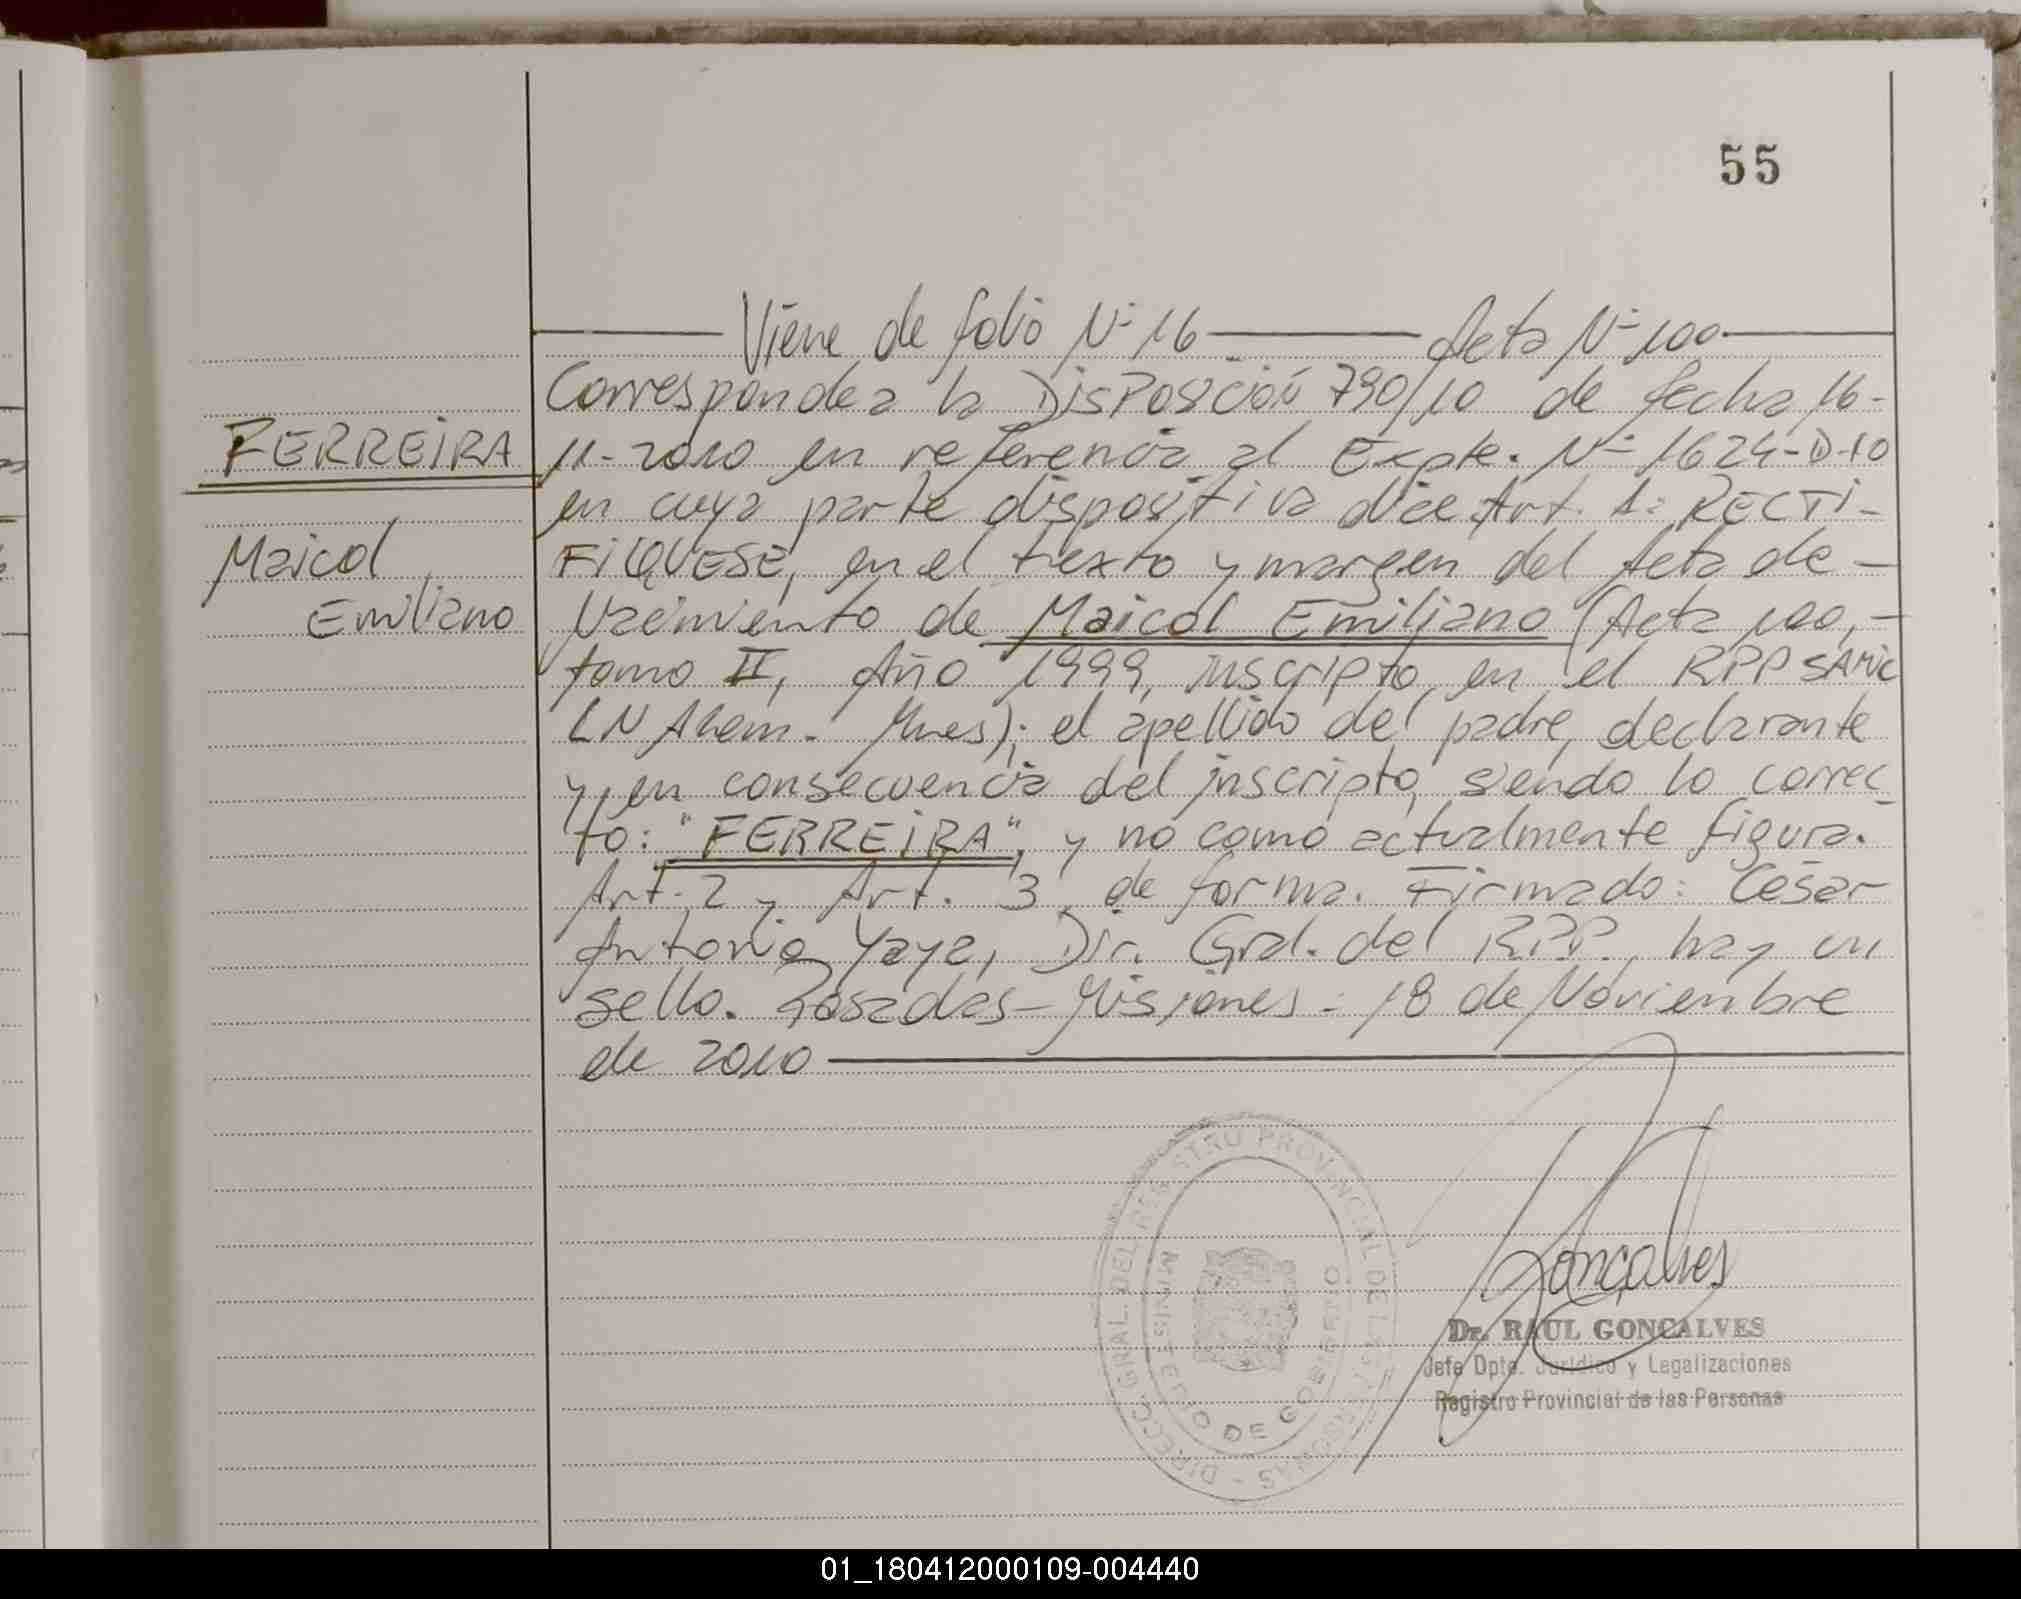 55
Viene de folio Nº 16 Acta Nº 100
Corresponde a la DisPosición 790/10 de fecha 16-
FERREIRA
11-2010 en referencia al Expte. Nº 1624-D-10
en cuya parte dispositiva dice Art. 1: RECTI-
Maicol
FIQUESE, en el texto y margen del Acta de
Emiliano
Nacimiento de Maicol Emiliano (Acta 100,
tomo II, Año 1999, inscripto en el RPP SAMIC
LN Alem. Mnes); el apellido del padre, declarante
y en consecuencia del inscripto, siendo lo correc
to: "FERREIRA", y no como actualmente figura.
Art. 2 y Art. 3 de forma. Firmado: Cesar
Antonio Yaya, Dir. Gral. del RPP., hay un
sello. Posadas-Misiones - 18 de Noviembre
de 2010
DIRECC. GRAL. DEL REGISTRO PROVINCIAL DE LAS PERSONAS -
MINISTERIO DE GOBIERNO
Goncalves
Dr. RAUL GONCALVES
Jefe Dpto. Jurídico y Legalizaciones
Registro Provincial de las Personas
01_180412000109-004440